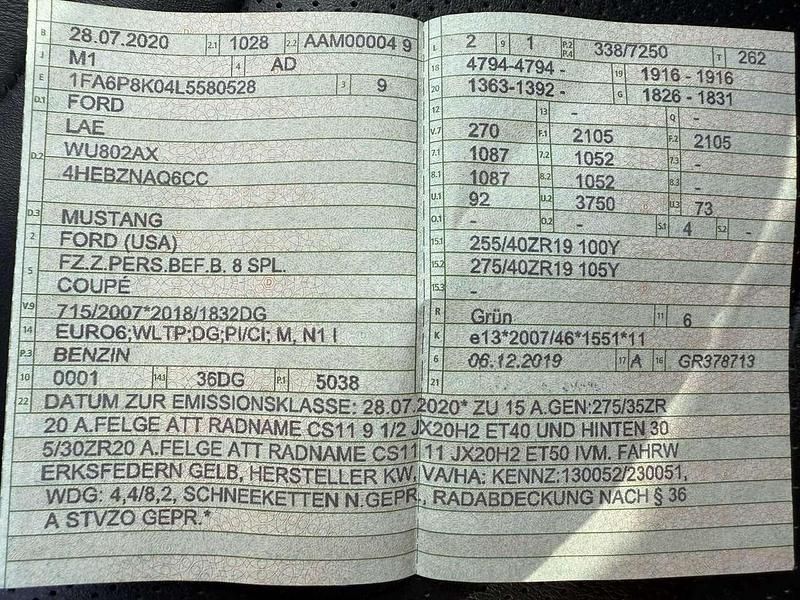 B 28.07.2020 2.1 1028 2.2 AAM00004 9
J M1 4 AD
E 1FA6P8K04L5580528 3 9
D.1 FORD
LAE
D.2 WU802AX
4HEBZNAQ6CC
D.3 MUSTANG
2 FORD (USA)
5 FZ.Z.PERS.BEF.B. 8 SPL.
COUPÉ
V.9 715/2007*2018/1832DG
14 EURO6;WLTP;DG;PI/CI; M, N1 I
P.3 BENZIN
10 0001 14.1 36DG P.1 5038
L 2 9 1 P.2 P.4 338/7250 T 262
18 4794-4794 - 19 1916 - 1916
20 1363-1392 - G 1826 - 1831
12 13 - Q -
V.7 270 F.1 2105 F.2 2105
7.1 1087 7.2 1052 7.3 -
8.1 1087 8.2 1052 8.3 -
U.1 92 U.2 3750 U.3 73
O.1 - O.2 - S.1 4 S.2 -
15.1 255/40ZR19 100Y
15.2 275/40ZR19 105Y
15.3 -
R Grün 11 6
K e13*2007/46*1551*11
6 06.12.2019 17 A 16 GR378713
21
22 DATUM ZUR EMISSIONSKLASSE: 28.07.2020* ZU 15 A.GEN:275/35ZR
20 A.FELGE ATT RADNAME CS11 9 1/2 JX20H2 ET40 UND HINTEN 30
5/30ZR20 A.FELGE ATT RADNAME CS11 11 JX20H2 ET50 IVM. FAHRW
ERKSFEDERN GELB, HERSTELLER KW, VA/HA: KENNZ:130052/230051,
WDG: 4,4/8,2, SCHNEEKETTEN N.GEPR., RADABDECKUNG NACH § 36
A STVZO GEPR.*